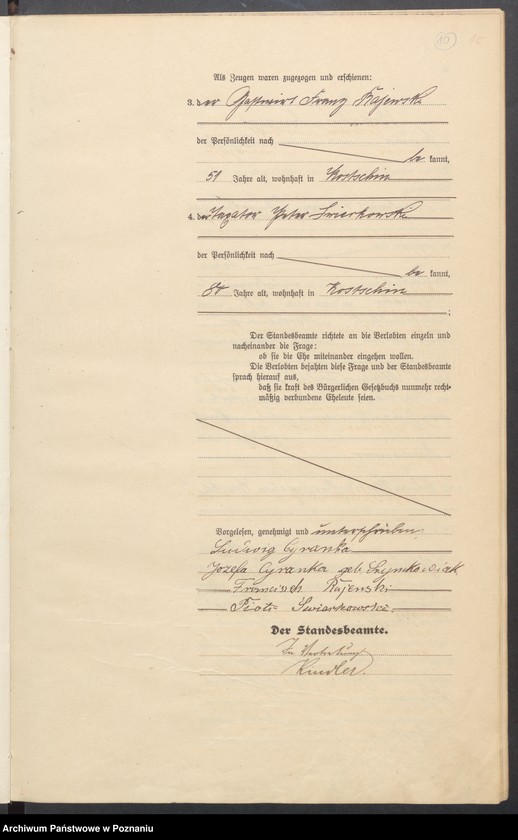 10
Als Zeugen waren zugezogen und erschienen:
3. der Gastwirt Franz Rajewski
der Persönlichkeit nach
be kannt,
51 Jahre alt, wohnhaft in Kostschin
4. der Taxator Peter Swierkowski
der Persönlichkeit nach
be kannt,
Jahre alt, wohnhaft in Kostschin
;
Der Standesbeamte richtete an die Verlobten einzeln und
nacheinander die Frage:
ob sie die Ehe miteinander eingehen wollen.
Die Verlobten bejahten diese Frage und der Standesbeamte
sprach hierauf aus,
daß sie kraft des Bürgerlichen Gesetzbuchs nunmehr recht-
mäßig verbundene Eheleute seien.
Vorgelesen, genehmigt und unterschrieben.
Ludwig Cyranka
Jozefa Cyranka geb. Szymkowiak
Rajewski
Piotr Swiarkowski.
Der Standesbeamte.
In Vertretung
Kindler.
Archiwum Państwowe w Poznaniu